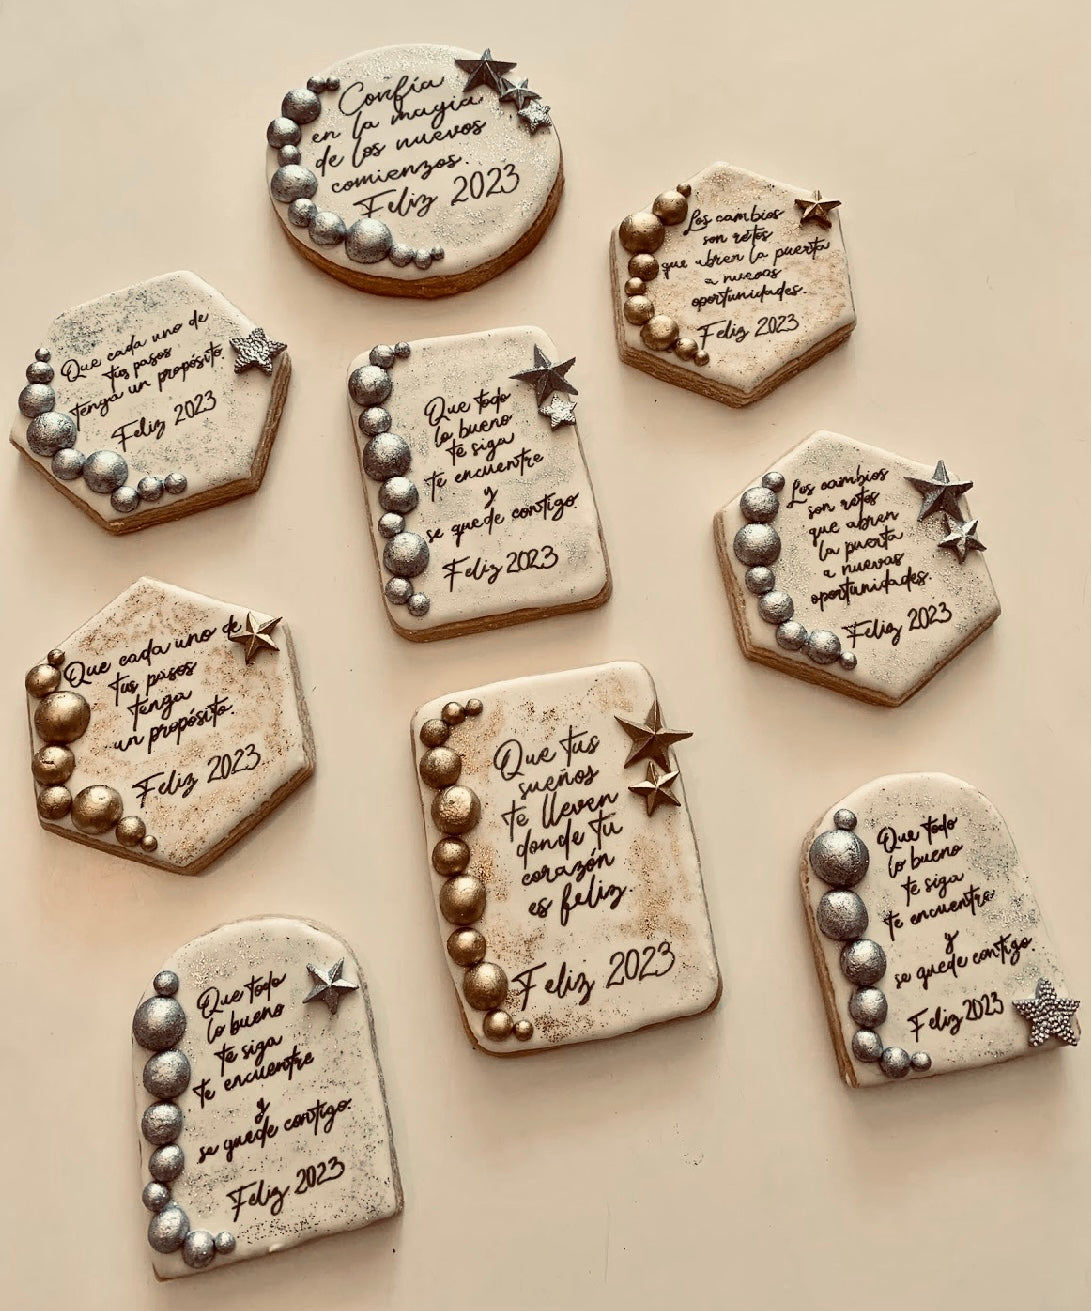 Confía
en la magia
de los nuevos
comienzos.
Feliz 2023
Los cambios
son retos
que abren la puerta
a nuevas
oportunidades.
Feliz 2023
Que cada uno de
tus pasos
tenga un propósito.
Feliz 2023
Que todo
lo bueno
te siga
te encuentre
y
se quede contigo.
Feliz 2023
Los cambios
son retos
que abren
la puerta
a nuevas
oportunidades.
Feliz 2023
Que cada uno de
tus pasos
tenga
un propósito.
Feliz 2023
Que tus
sueños
te lleven
donde tu
corazón
es feliz.
Feliz 2023
Que todo
lo bueno
te siga
te encuentre
y
se quede contigo.
Feliz 2023
Que todo
lo bueno
te siga
te encuentre
y
se quede contigo.
Feliz 2023